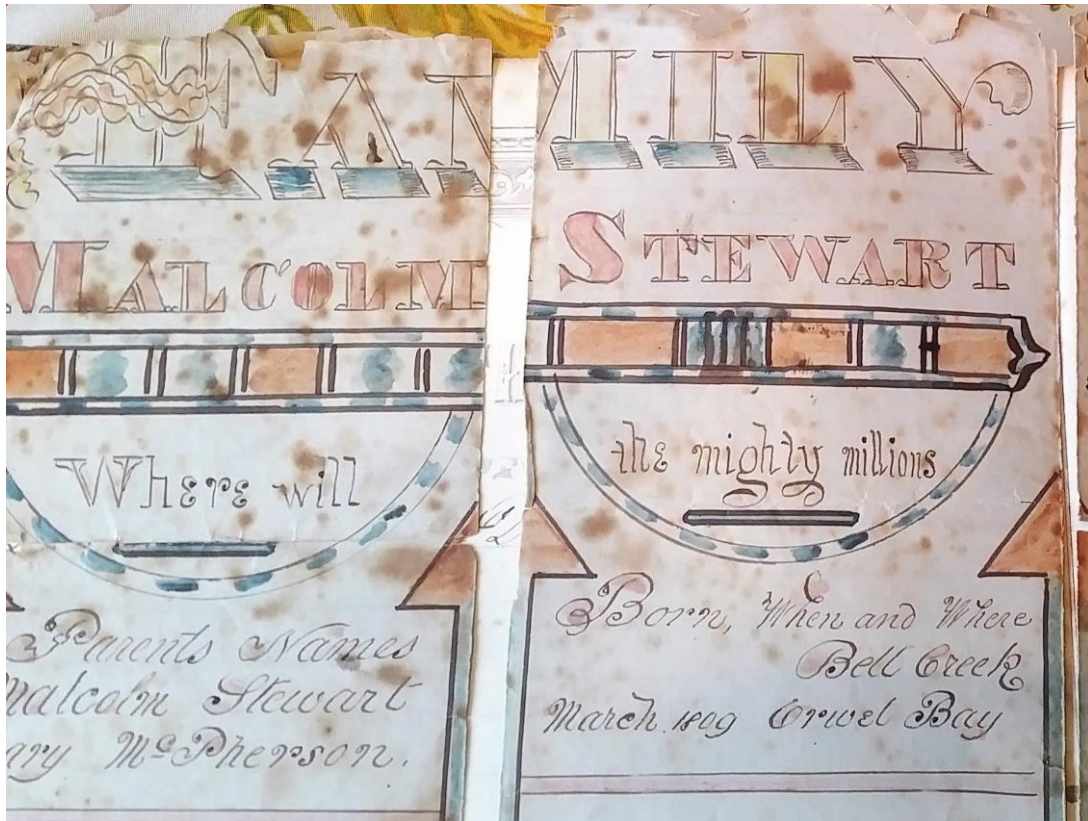 FAMILY
MALCOLM STEWART
Where will the mighty millions
Parents Names
Malcolm Stewart
ary McPherson.
Born, When and Where
Bell Creek
March 1809 Orwel Bay